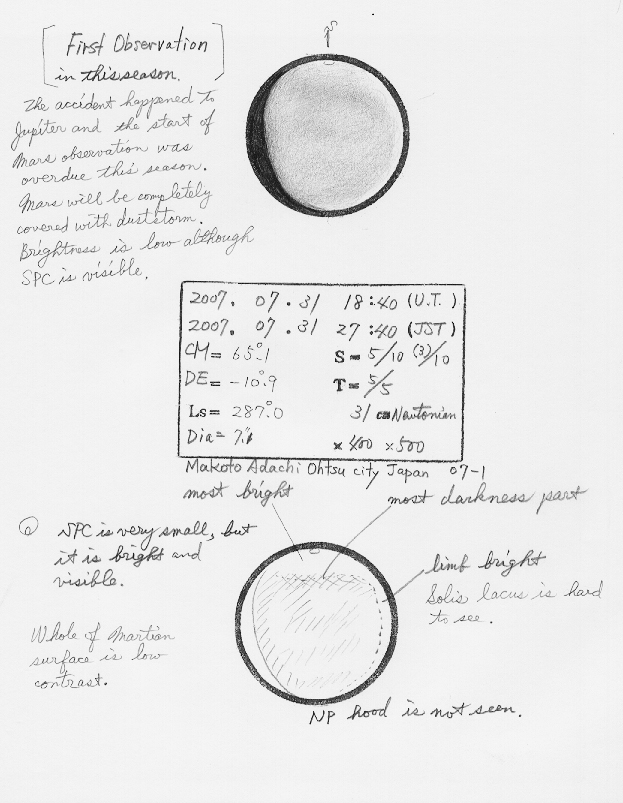 S
First Observation
in this season.
The accident happened to
Jupiter and the start of
Mars observation was
overdue this season.
Mars will be completely
covered with duststorm.
Brightness is low although
SPC is visible.
2007. 07. 31 18:40 (U.T.)
2007. 07. 31 27:40 (JST)
CM= 65°.1 S= 5/10 (3)/10
DE= -10°.9 T= 5/5
Ls= 287°.0 31 cm Newtonian
Dia= ×400 ×500
Makoto Adachi Ohtsu city Japan 07-1
most bright
most darkness part
SPC is very small, but
it is bright and
visible.
limb bright
Solis lacus is hard
to see.
Whole of Martian
surface is low
contrast.
NP hood is not seen.